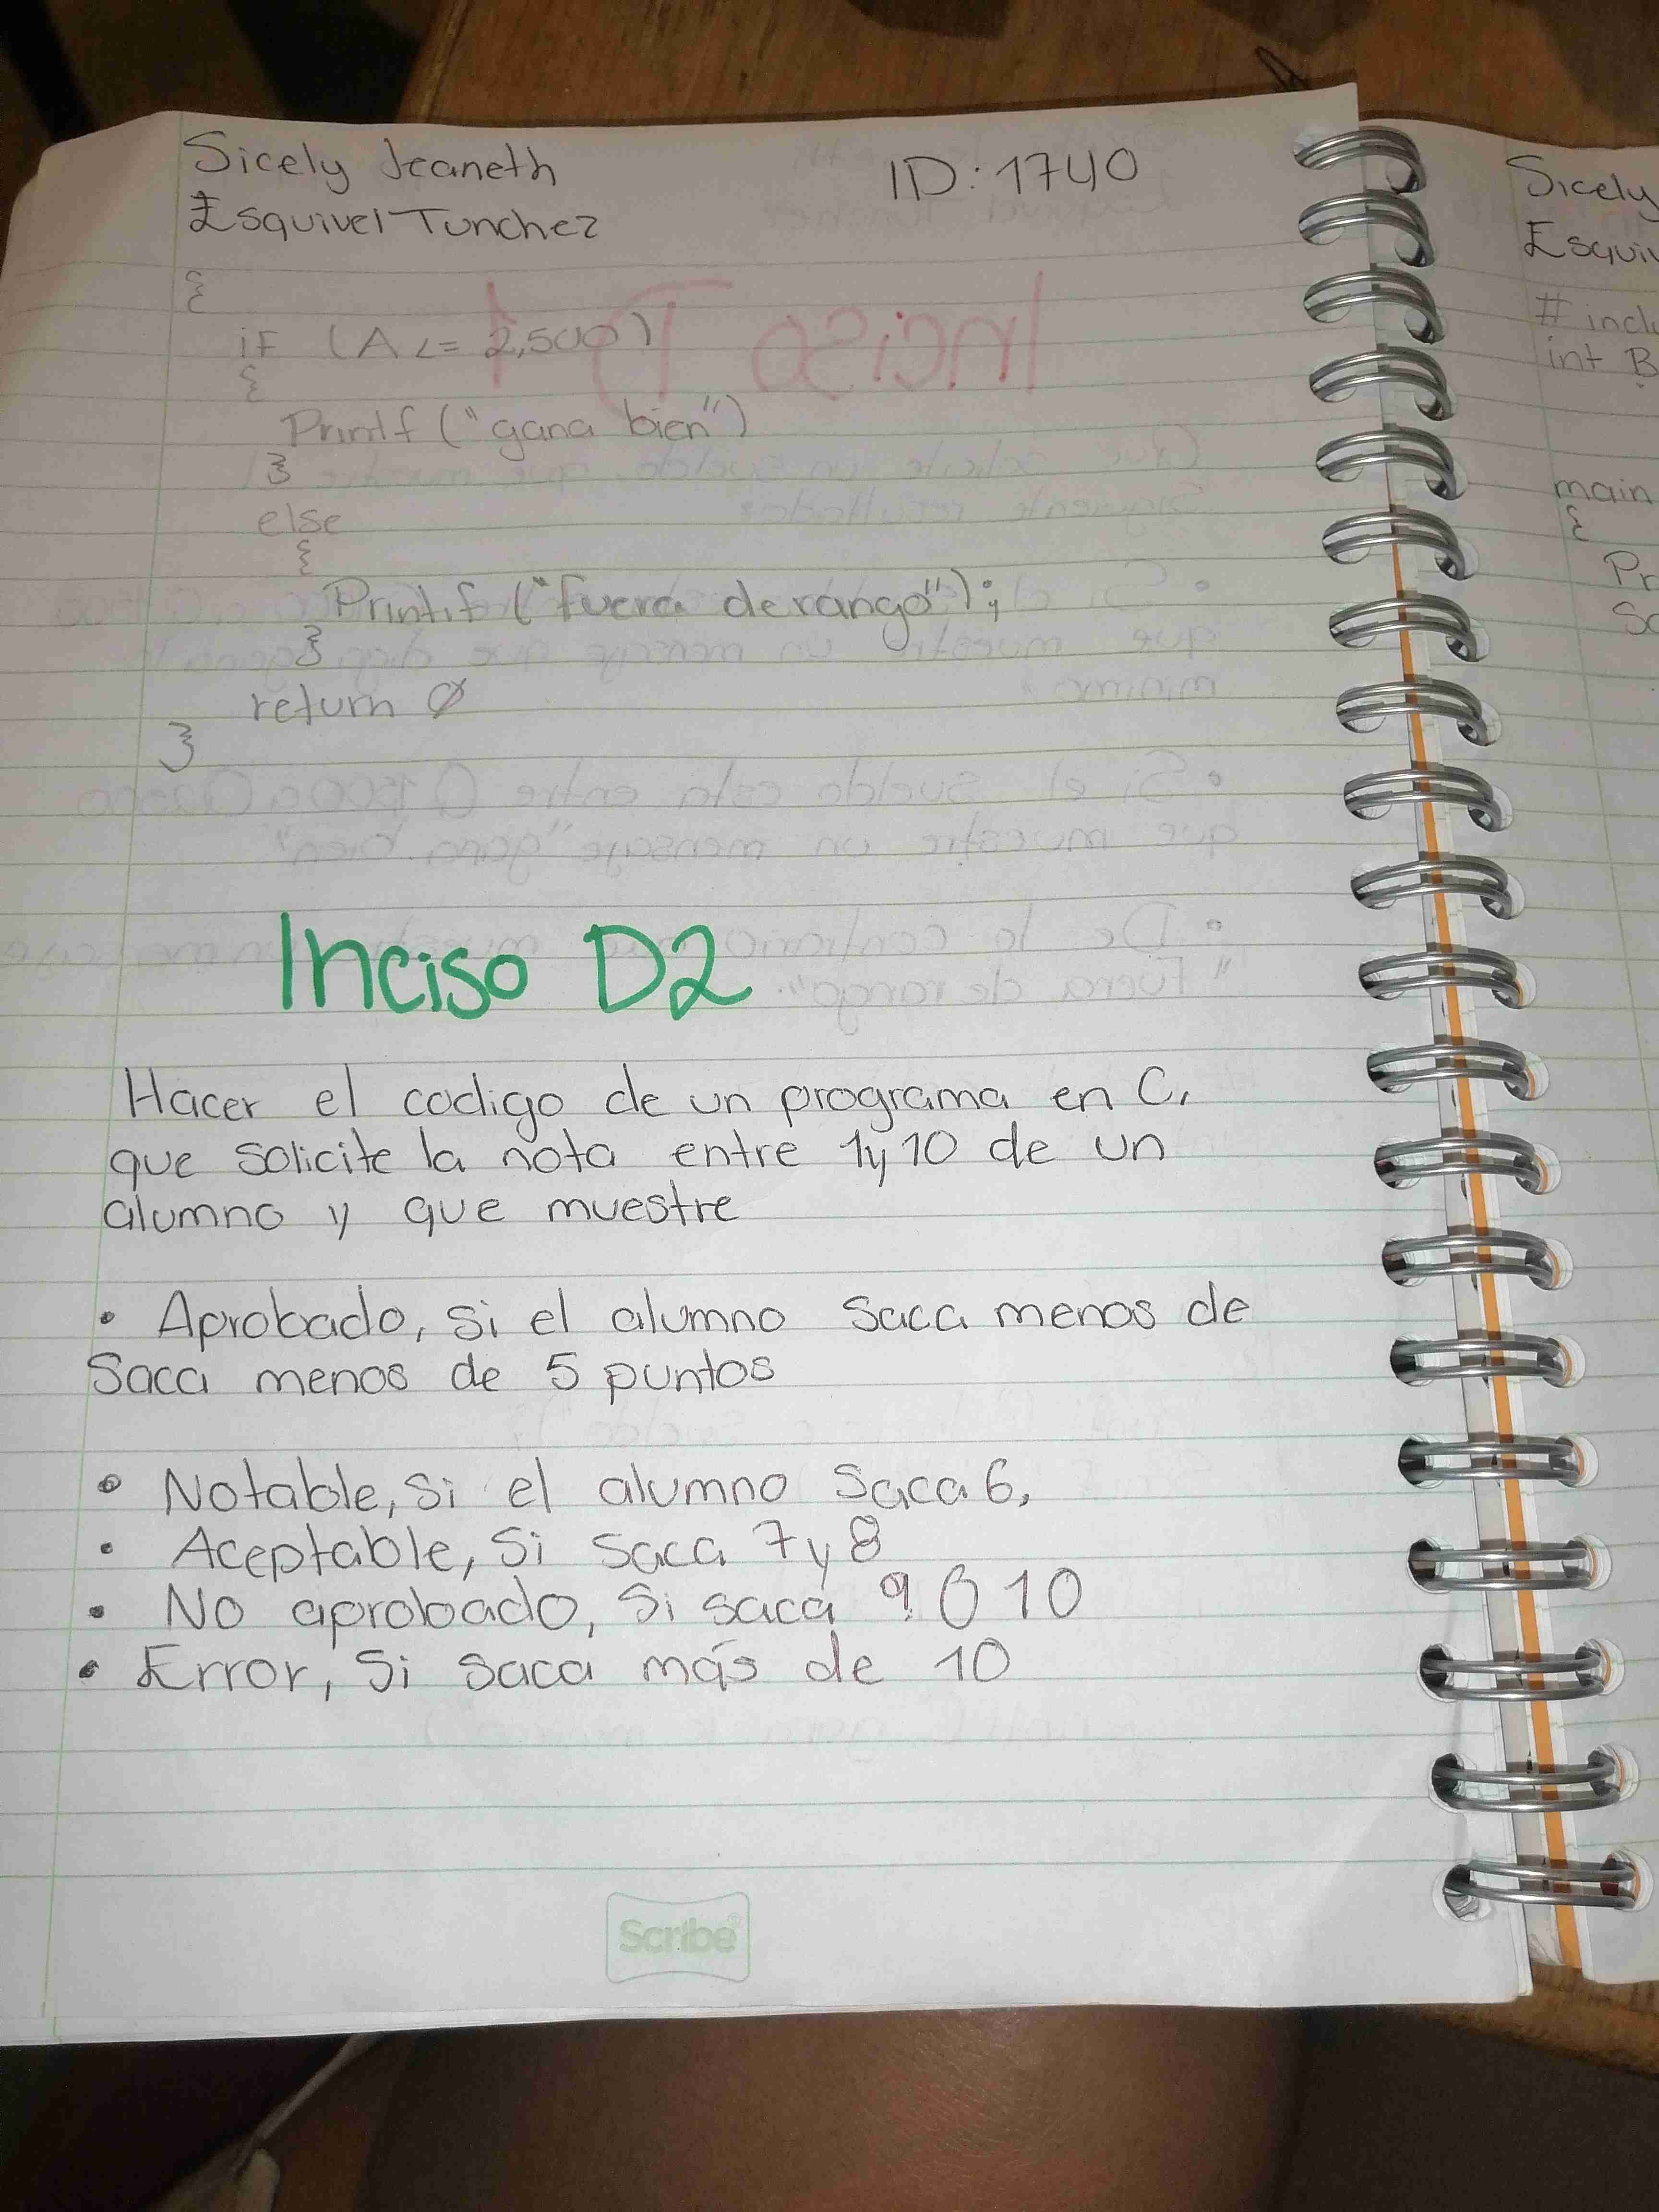 Sicely Jeaneth
Esquivel Tunchez
ID: 1740
{
if (A <= 2,500)
{
Printf ("gana bien")
}
else
{
Printif ("fuera de rango");
}
return 0
}
Inciso D2
Hacer el codigo de un programa en C,
que solicite la nota entre 1 y 10 de un
alumno y que muestre
• Aprobado, si el alumno saca menos de
Saca menos de 5 puntos
• Notable, si el alumno saca 6,
• Aceptable, si saca 7 y 8
• No aprobado, si saca 9 ó 10
• Error, si saca más de 10
Scribe®
Sicely
Esquiv
# inclu
int B
main
{
Pr
Sc